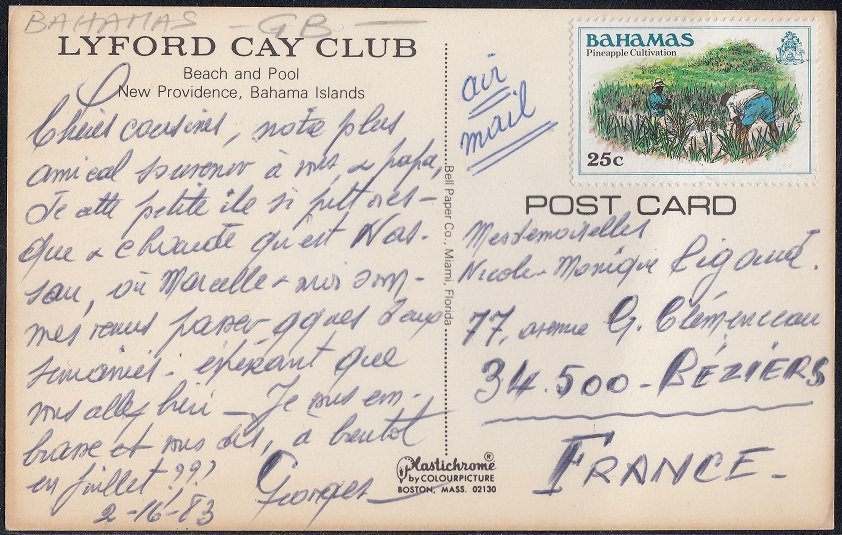 BAHAMAS - GB -
LYFORD CAY CLUB
Beach and Pool
New Providence, Bahama Islands
Chères cousines, notre plus
amical souvenir à vous, & papa,
de cette petite île si pittores-
que & chaude qu'est Nas-
sau, où Marcelle & moi som-
mes venus passer qques deux
semaines. espérant que
vous allez bien - Je vous em-
brasse et vous dis, à bientôt
en juillet ???
Georges
2-16-83
Bell Paper Co., Miami, Florida
Plastichrome ®
by COLOURPICTURE
BOSTON, MASS. 02130
air
mail
BAHAMAS
Pineapple Cultivation
25c
POST CARD
Mesdemoiselles
Nicole & Monique Rigaud.
77, avenue G. Clémenceau
34.500 - BÉZIERS
FRANCE -